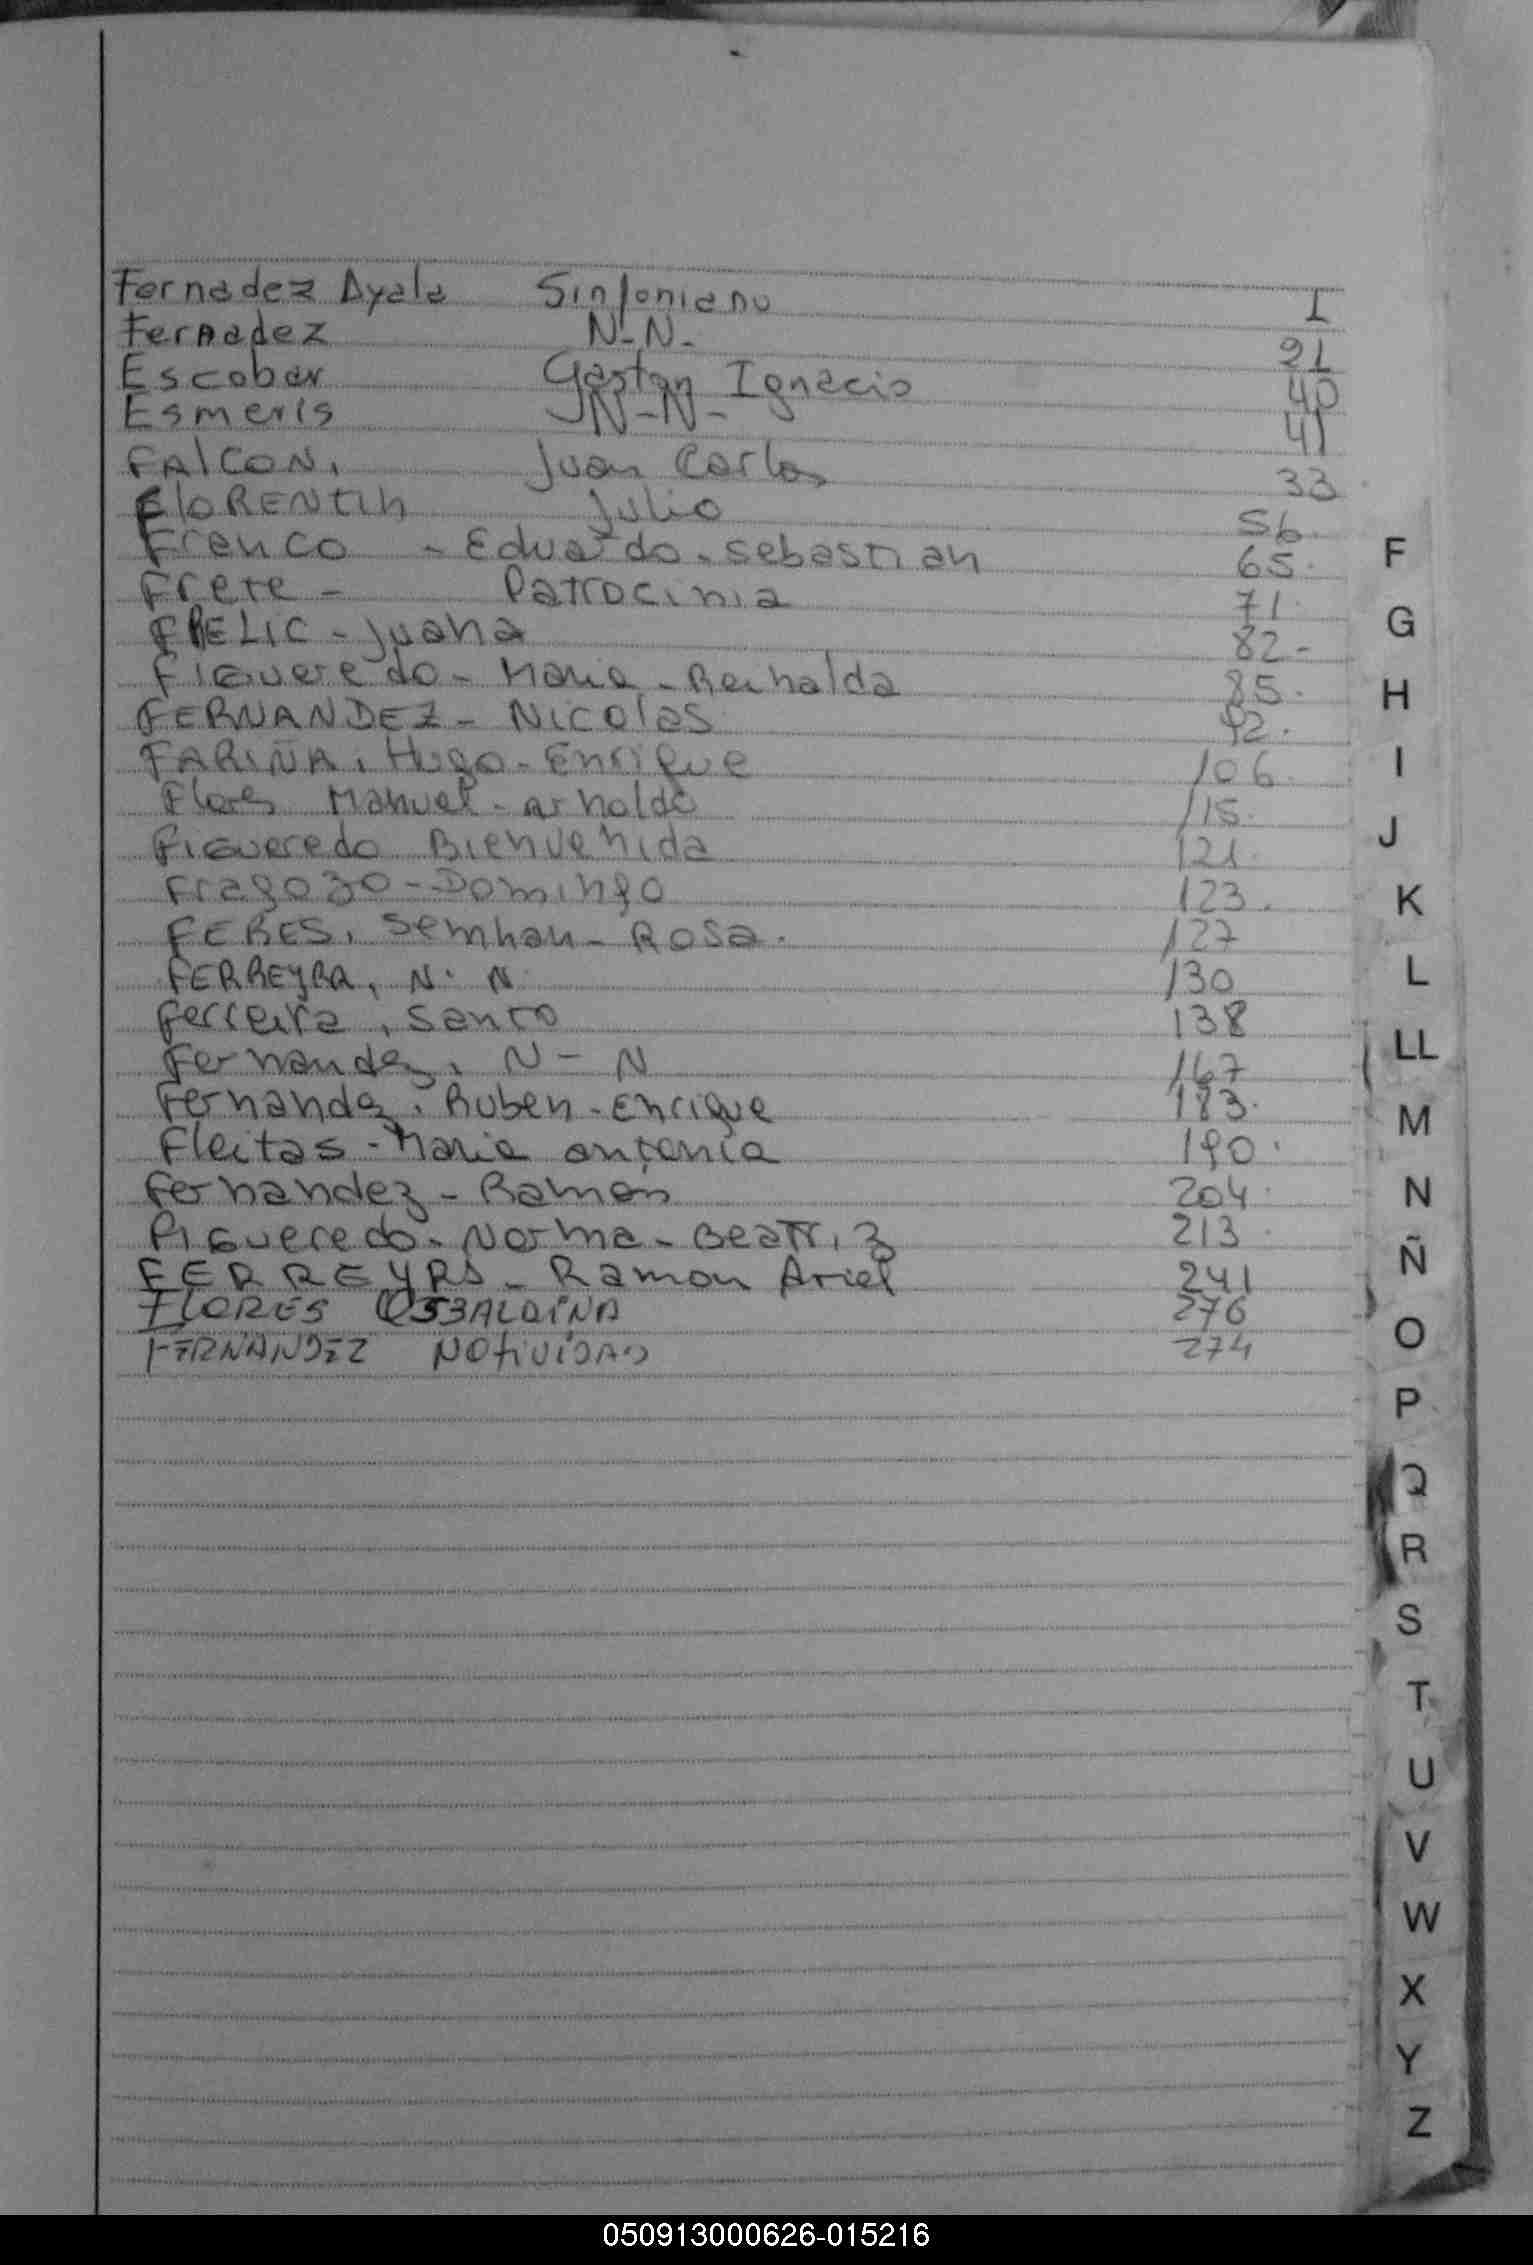 Fernadez Ayala Sinforiano 1
Fernadez N-N- 21
Escobar Gaston Ignacio 40
Esmeris N-N- 41
FALCON, Juan Carlos 33
FLORENTIN Julio 56.
Franco - Eduardo - Sebastian 65.
Frete - Patrocinia 71.
FRELIC - Juana 82-
Figueredo - Maria - Reinalda 85.
FERNANDEZ - Nicolas 92.
FARIÑA, Hugo - Enrique 106.
Flores Manuel - arnoldo 115.
Figueredo Bienvenida 121.
Fragozo - Domingo 123.
FERES, Semhan - Rosa. 127
FERREYRA, N. N 130
Ferreira, Santo 138
Fernandez, N - N 167
Fernandez, Ruben - Enrique 183.
Fleitas - Maria antonia 190.
Fernandez - Ramon 204.
Figueredo - Norma - Beatriz 213.
FERREYRA - Ramon Ariel 241
FLORES 276
FERNANDEZ NOTIVIDAD 274
F
G
H
I
J
K
L
LL
M
N
Ñ
O
P
Q
R
S
T
U
V
W
X
Y
Z
050913000626-015216